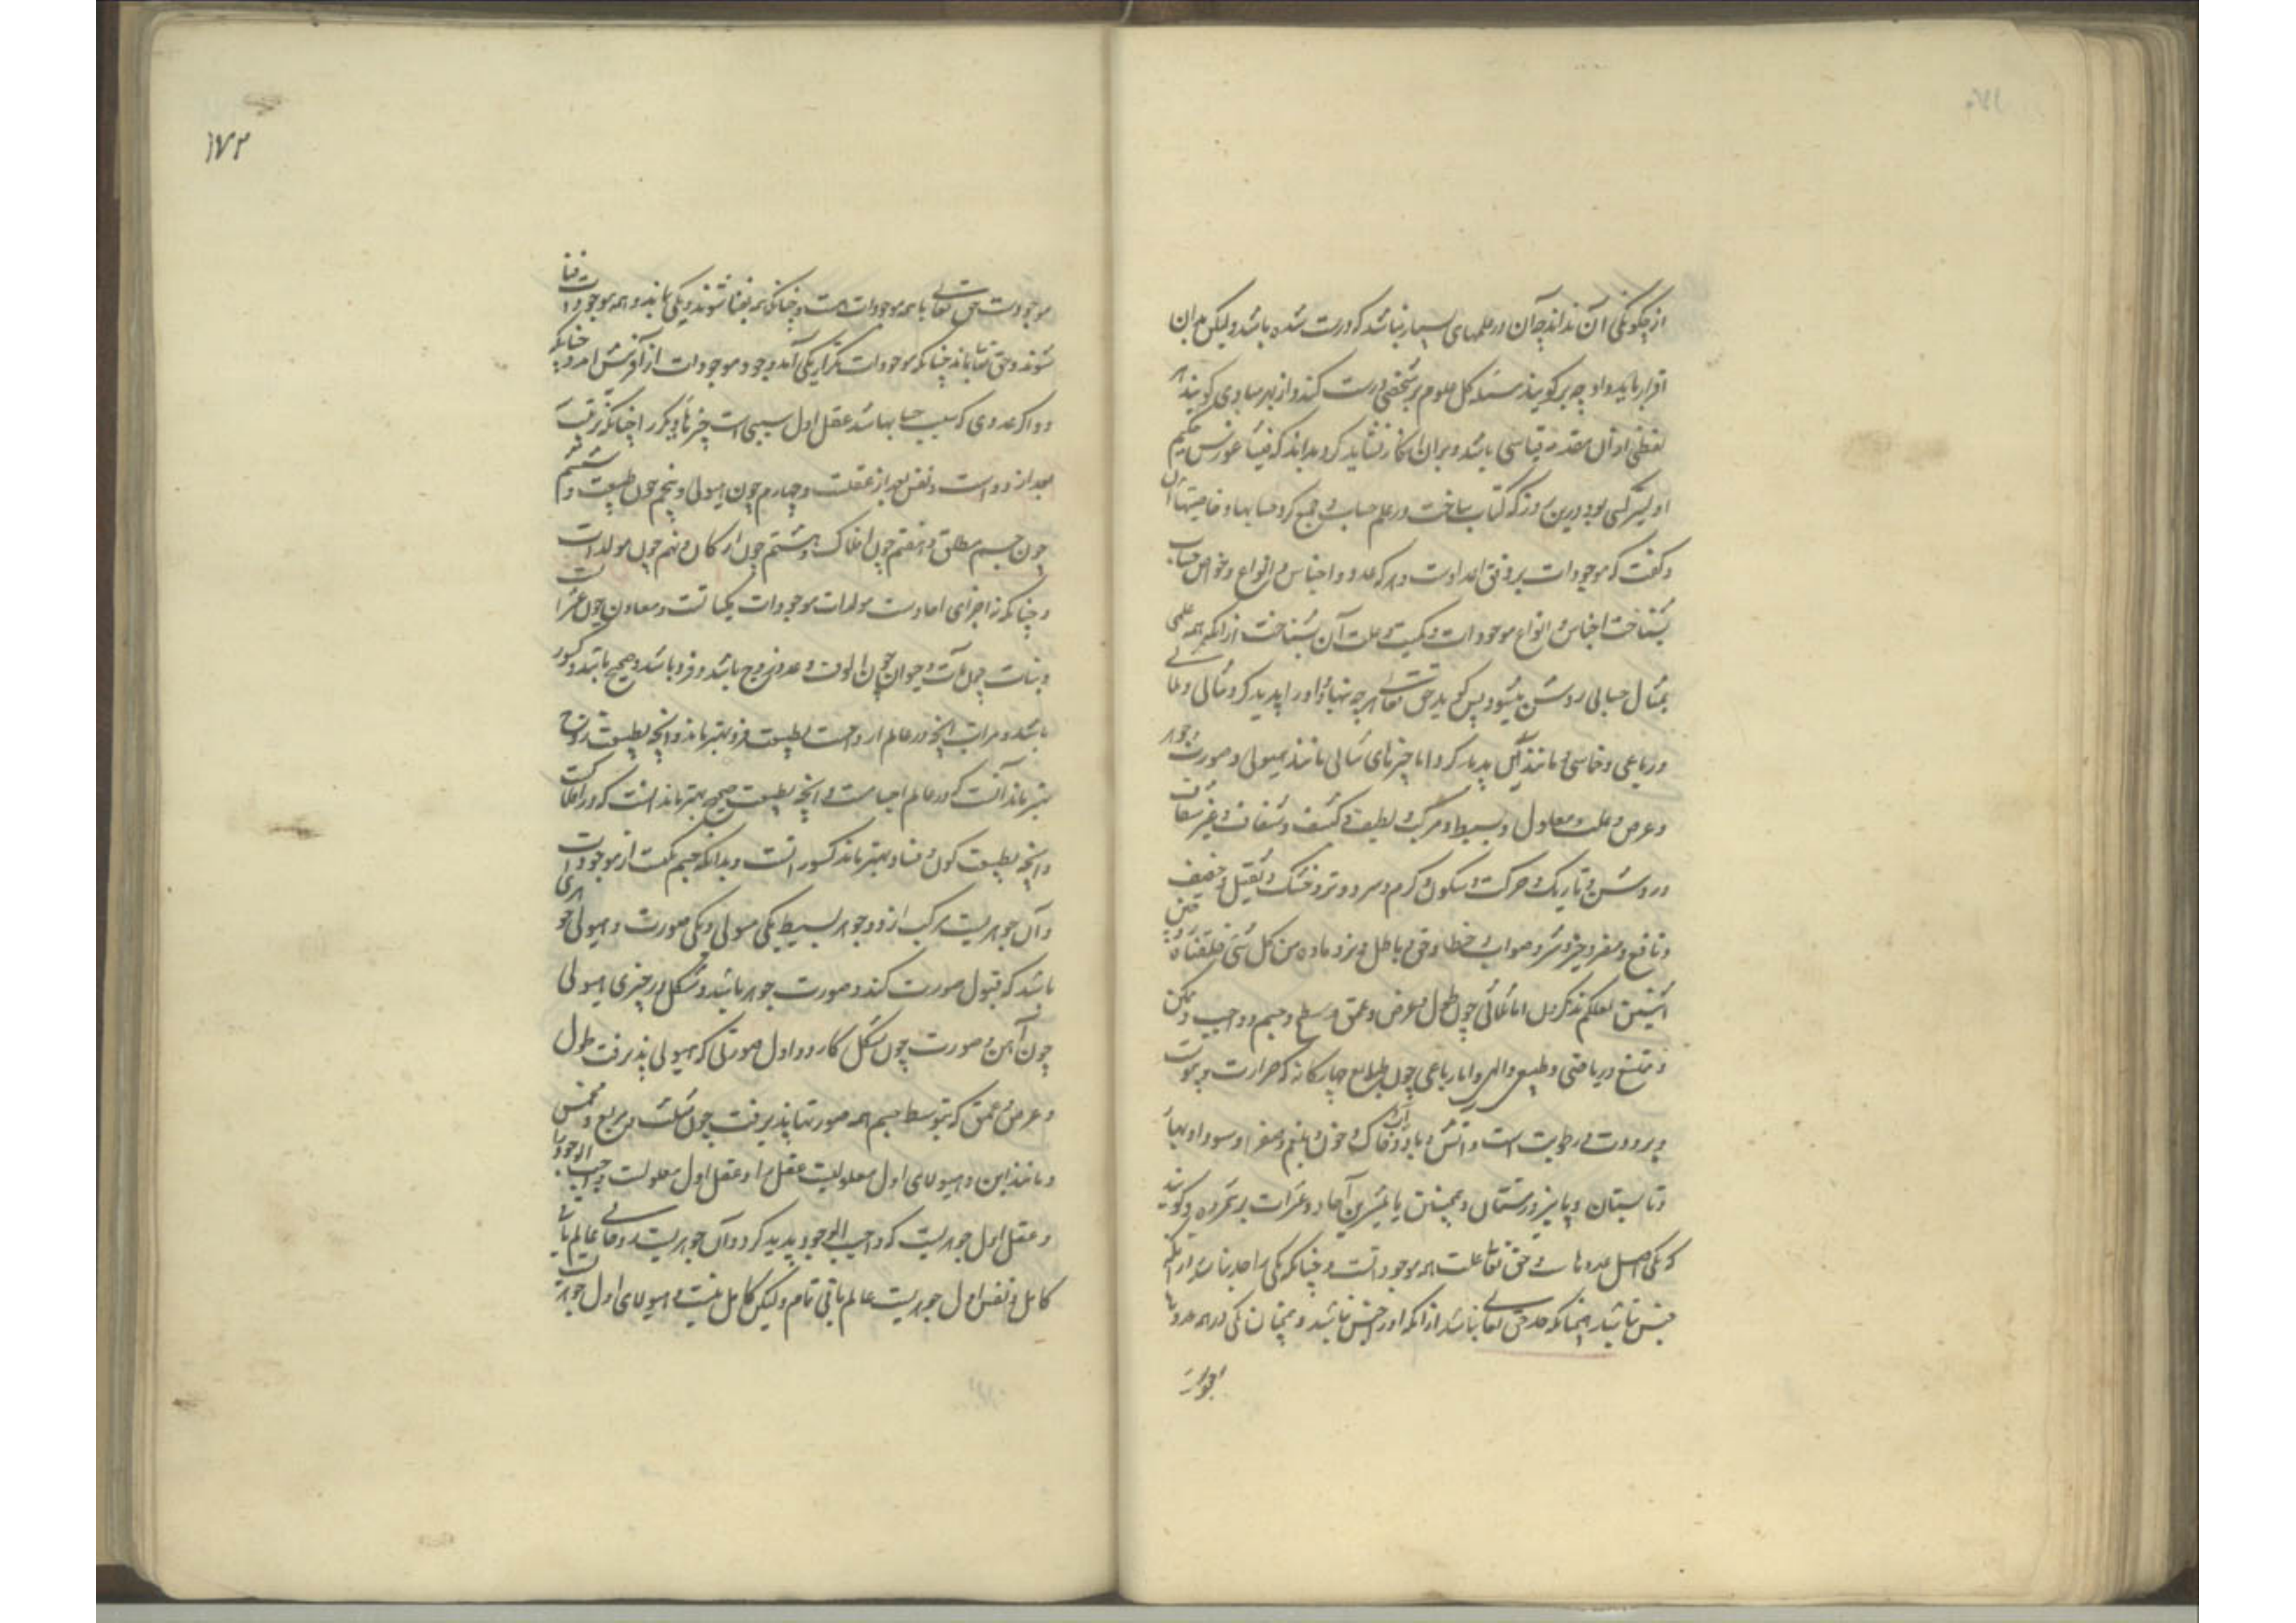 از چگونگی آن نداند چه آن در علمهای بسیار نباشد که درست شده باشد ولیکن بدان
اقرار باید داد چه برگویند مسئله کل علوم بر شخصی درست کند و از بهر مبادی گویند هر
لفظی از آن مقدمه قیاسی باشد و بران انکار نشاید کرد و بداند که فیثاغورس حکیم
اولین کسی بود درین روزگار کتاب ساخت در علم حساب و جمع کرد حسابها و خاصیتها آن
و گفت که موجودات بر وفق اعدادست و هر که عدد و اجناس و انواع و خواص حساب
بشناخت اجناس و انواع موجودات و کمیت و علت آن بشناخت از آنکه همه علمی
بمثال حسابی روشن میشود پس گوید حق تعالی هر چه تنها و را پدید کرد ثنائی و ثلاثی
و رباعی و خماسی و مانند آن پدید کرد اما چیزهای ثنائی مانند هیولی و صورت و جوهر
و عرض و علت و معلول و بسیط و مرکب و لطیف و کثیف و شفاف و غیر شفاف
و روشن و تاریک و حرکت و سکون و گرم و سرد و تر و خشک و ثقیل و خفیف
و نافع و مضر و خیر و شر و صواب و خطا و حق و باطل و نر و ماده من کل شئ خلقناه زوجین
اثنین لعلکم تذکرون اما ثلاثی چون طول و عرض و عمق و سطح و جسم و واجب و ممکن
و ممتنع و ریاضی و طبیعی و الهی و اما رباعی چون طبایع چهارگانه که حرارت و یبوست
و برودت و رطوبت است و آتش و باد و آب و خاک و خون و بلغم و صفرا و سودا و بهار
و تابستان و پاییز و زمستان و همچنین تا عشرین آحاد و عشرات بر شمرده و گویند
که یکی اصل عددهاست و حق تعالی علت همه موجوداتست و چنانکه یکی را حد نباشد از آنکه
جنس نباشد همچنانکه حد حق تعالی نباشد از آنکه او را جنس نباشد و همچنان یکی در همه عددها
موجودست
١٧٢
موجودست حق تعالی با همه موجودات هست و چنانکه همه بفنا شوند و یکی بماند و همه موجودات فنا
شوند و حق تعالی بماند چنانکه موجودات بتکرار یکی آمد وجود موجودات از آفرینش آمد و چنانکه
دو اگر عددی که سبب حسابها شد عقل اول سببی است چیزهای دیگر را چنانکه ترتیب سه
بعد از دو است و نفس بعد از عقلست و چهارم چون هیولی و پنجم چون طبیعت و ششم
چون جسم مطلق و هفتم چون افلاک و هشتم چون ارکان و نهم چون مولدات
و چنانکه نه اجزای احادست مولدات موجودات کلیاتست و معادن چون عشرات
و نبات چون مآت و حیوان چون الوف و عدد زوج باشد و فرد باشد و صحیح باشد و کسور
باشد و مراتب آنچه در عالم ارواحست بطبیعت فرد بهتر ماند و آنچه بطبیعت زوج
بهتر ماند آنست که در عالم اجسامست و آنچه بطبیعت صحیح بهتر ماند آنست که در افلاکست
و آنچه بطبیعت کون و فساد بهتر ماند کسور آنست و بدانکه جسم یکست از موجودات
و آن جوهریست مرکب از دو جوهر بسیط یکی هیولی و یکی صورت و هیولی جوهری
باشد که قبول صورت کند و صورت جوهر باشد و شکل هر چیزی هیولی
چون آهن و صورت چون شکل کارد و اول صورتی که هیولی پذیرفت طول
و عرض و عمق که بتوسط جسم همه صورتها پذیرفت چون مثلث و مربع و مخمس
و مانند این و هیولای اول معلولیست عقل را و عقل اول معلولست واجب الوجود را
و عقل اول جوهریست که واجب الوجود پدید کرد و آن جوهریست روحانی عالم باقی
کامل و نفس اول جوهریست عالم باقی تام ولیکن کامل نیست و هیولای اول جوهریست